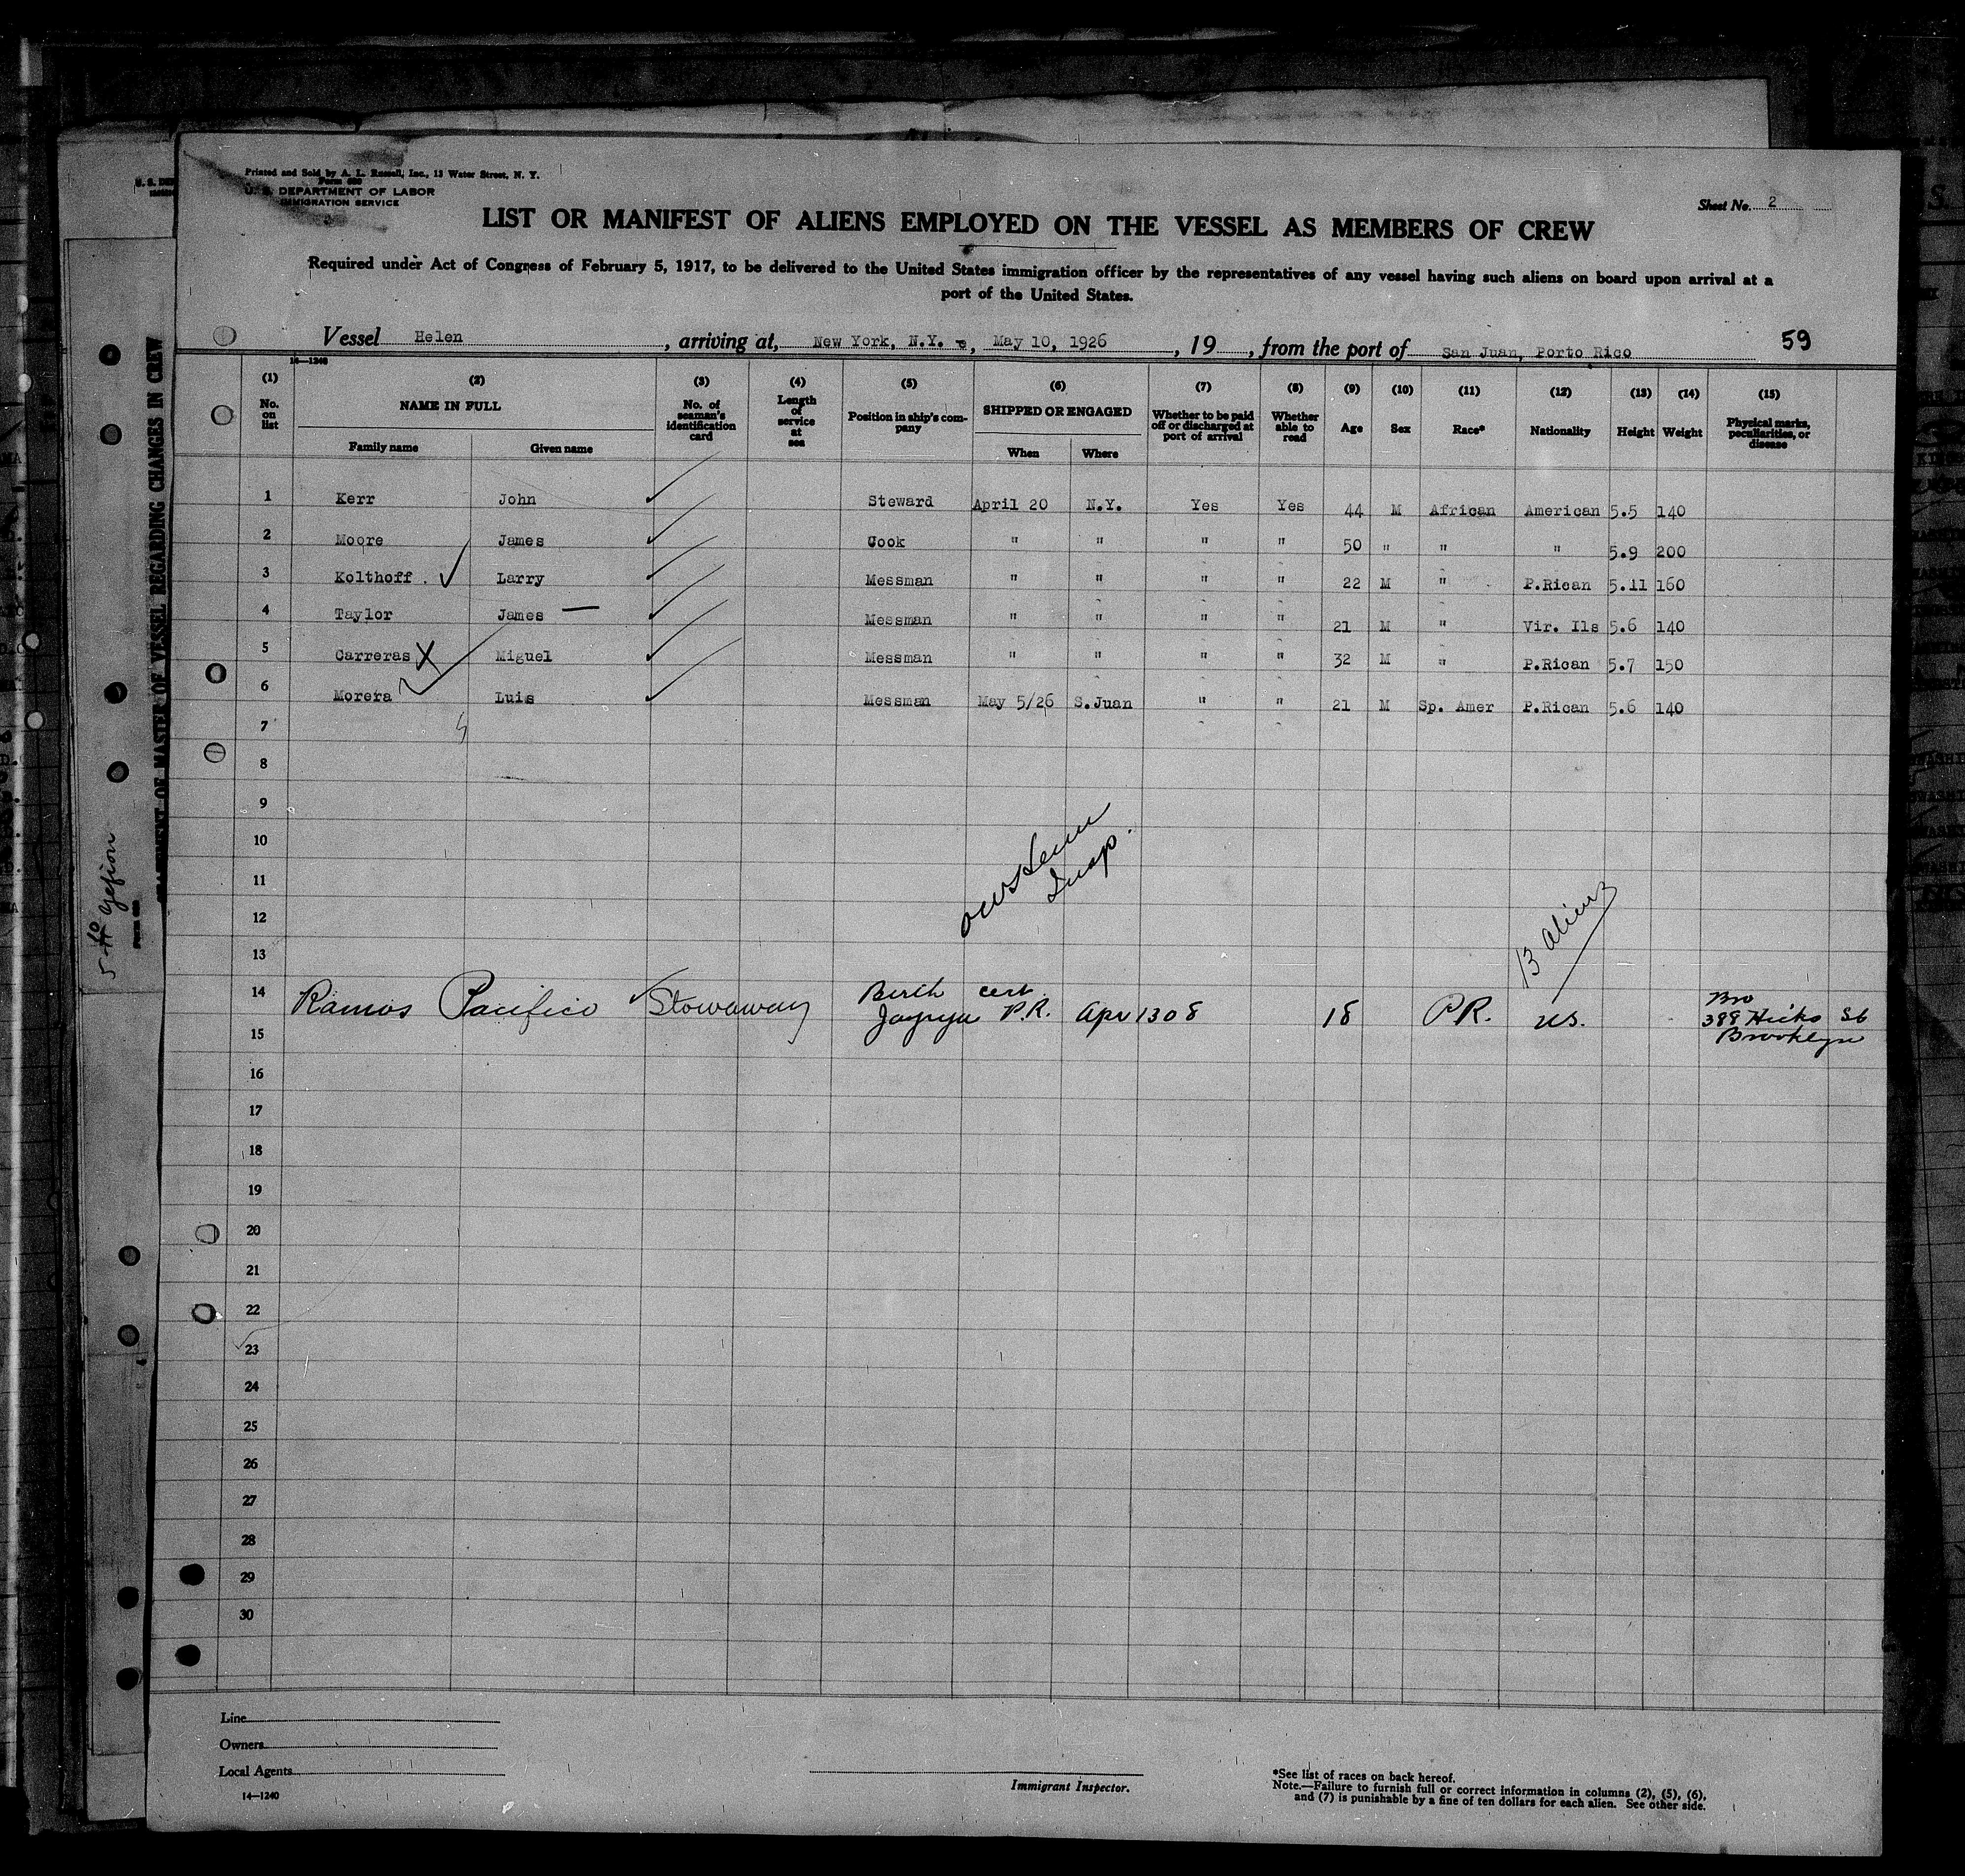 Printed and Sold by A. L. Russell, Inc., 13 Water Street, N. Y.
Form 680
U. S. DEPARTMENT OF LABOR
IMMIGRATION SERVICE
Sheet No. 2
LIST OR MANIFEST OF ALIENS EMPLOYED ON THE VESSEL AS MEMBERS OF CREW
Required under Act of Congress of February 5, 1917, to be delivered to the United States immigration officer by the representatives of any vessel having such aliens on board upon arrival at a
port of the United States.
Vessel Helen, arriving at, New York, N.Y., May 10, 1926, 19, from the port of San Juan, Porto Rico 59
14—1240
(1) (2) (3) (4) (5) (6) (7) (8) (9) (10) (11) (12) (13) (14) (15)
No. on list NAME IN FULL No. of seaman's identification card Length of service at sea Position in ship's company SHIPPED OR ENGAGED Whether to be paid off or discharged at port of arrival Whether able to read Age Sex Race* Nationality Height Weight Physical marks, peculiarities, or disease
Family name Given name When Where
1 Kerr John Steward April 20 N.Y. Yes Yes 44 M African American 5.5 140
2 Moore James Cook " " " " 50 " " " 5.9 200
3 Kolthoff. Larry Messman " " " " 22 M " P.Rican 5.11 160
4 Taylor James — Messman " " " " 21 M " Vir. Ils 5.6 140
5 Carreras X Miguel Messman " " " " 32 M " P.Rican 5.7 150
6 Morera Luis Messman May 5/26 S.Juan " " 21 M Sp. Amer P.Rican 5.6 140
7
8
9
10
11
12
13
13 aliens
14 Birth cert
Ramos Pacifico Stowaway P.R. Apr 13 08 18 P.R. U.S. Bro 388 Hicks St
15 Brooklyn
16
17
18
19
20
21
22
23
24
25
26
27
28
29
30
Line
Owners
Local Agents
14—1240
Immigrant Inspector.
*See list of races on back hereof.
Note.—Failure to furnish full or correct information in columns (2), (5), (6),
and (7) is punishable by a fine of ten dollars for each alien. See other side.
OF MASTER OF VESSEL REGARDING CHANGES IN CREW